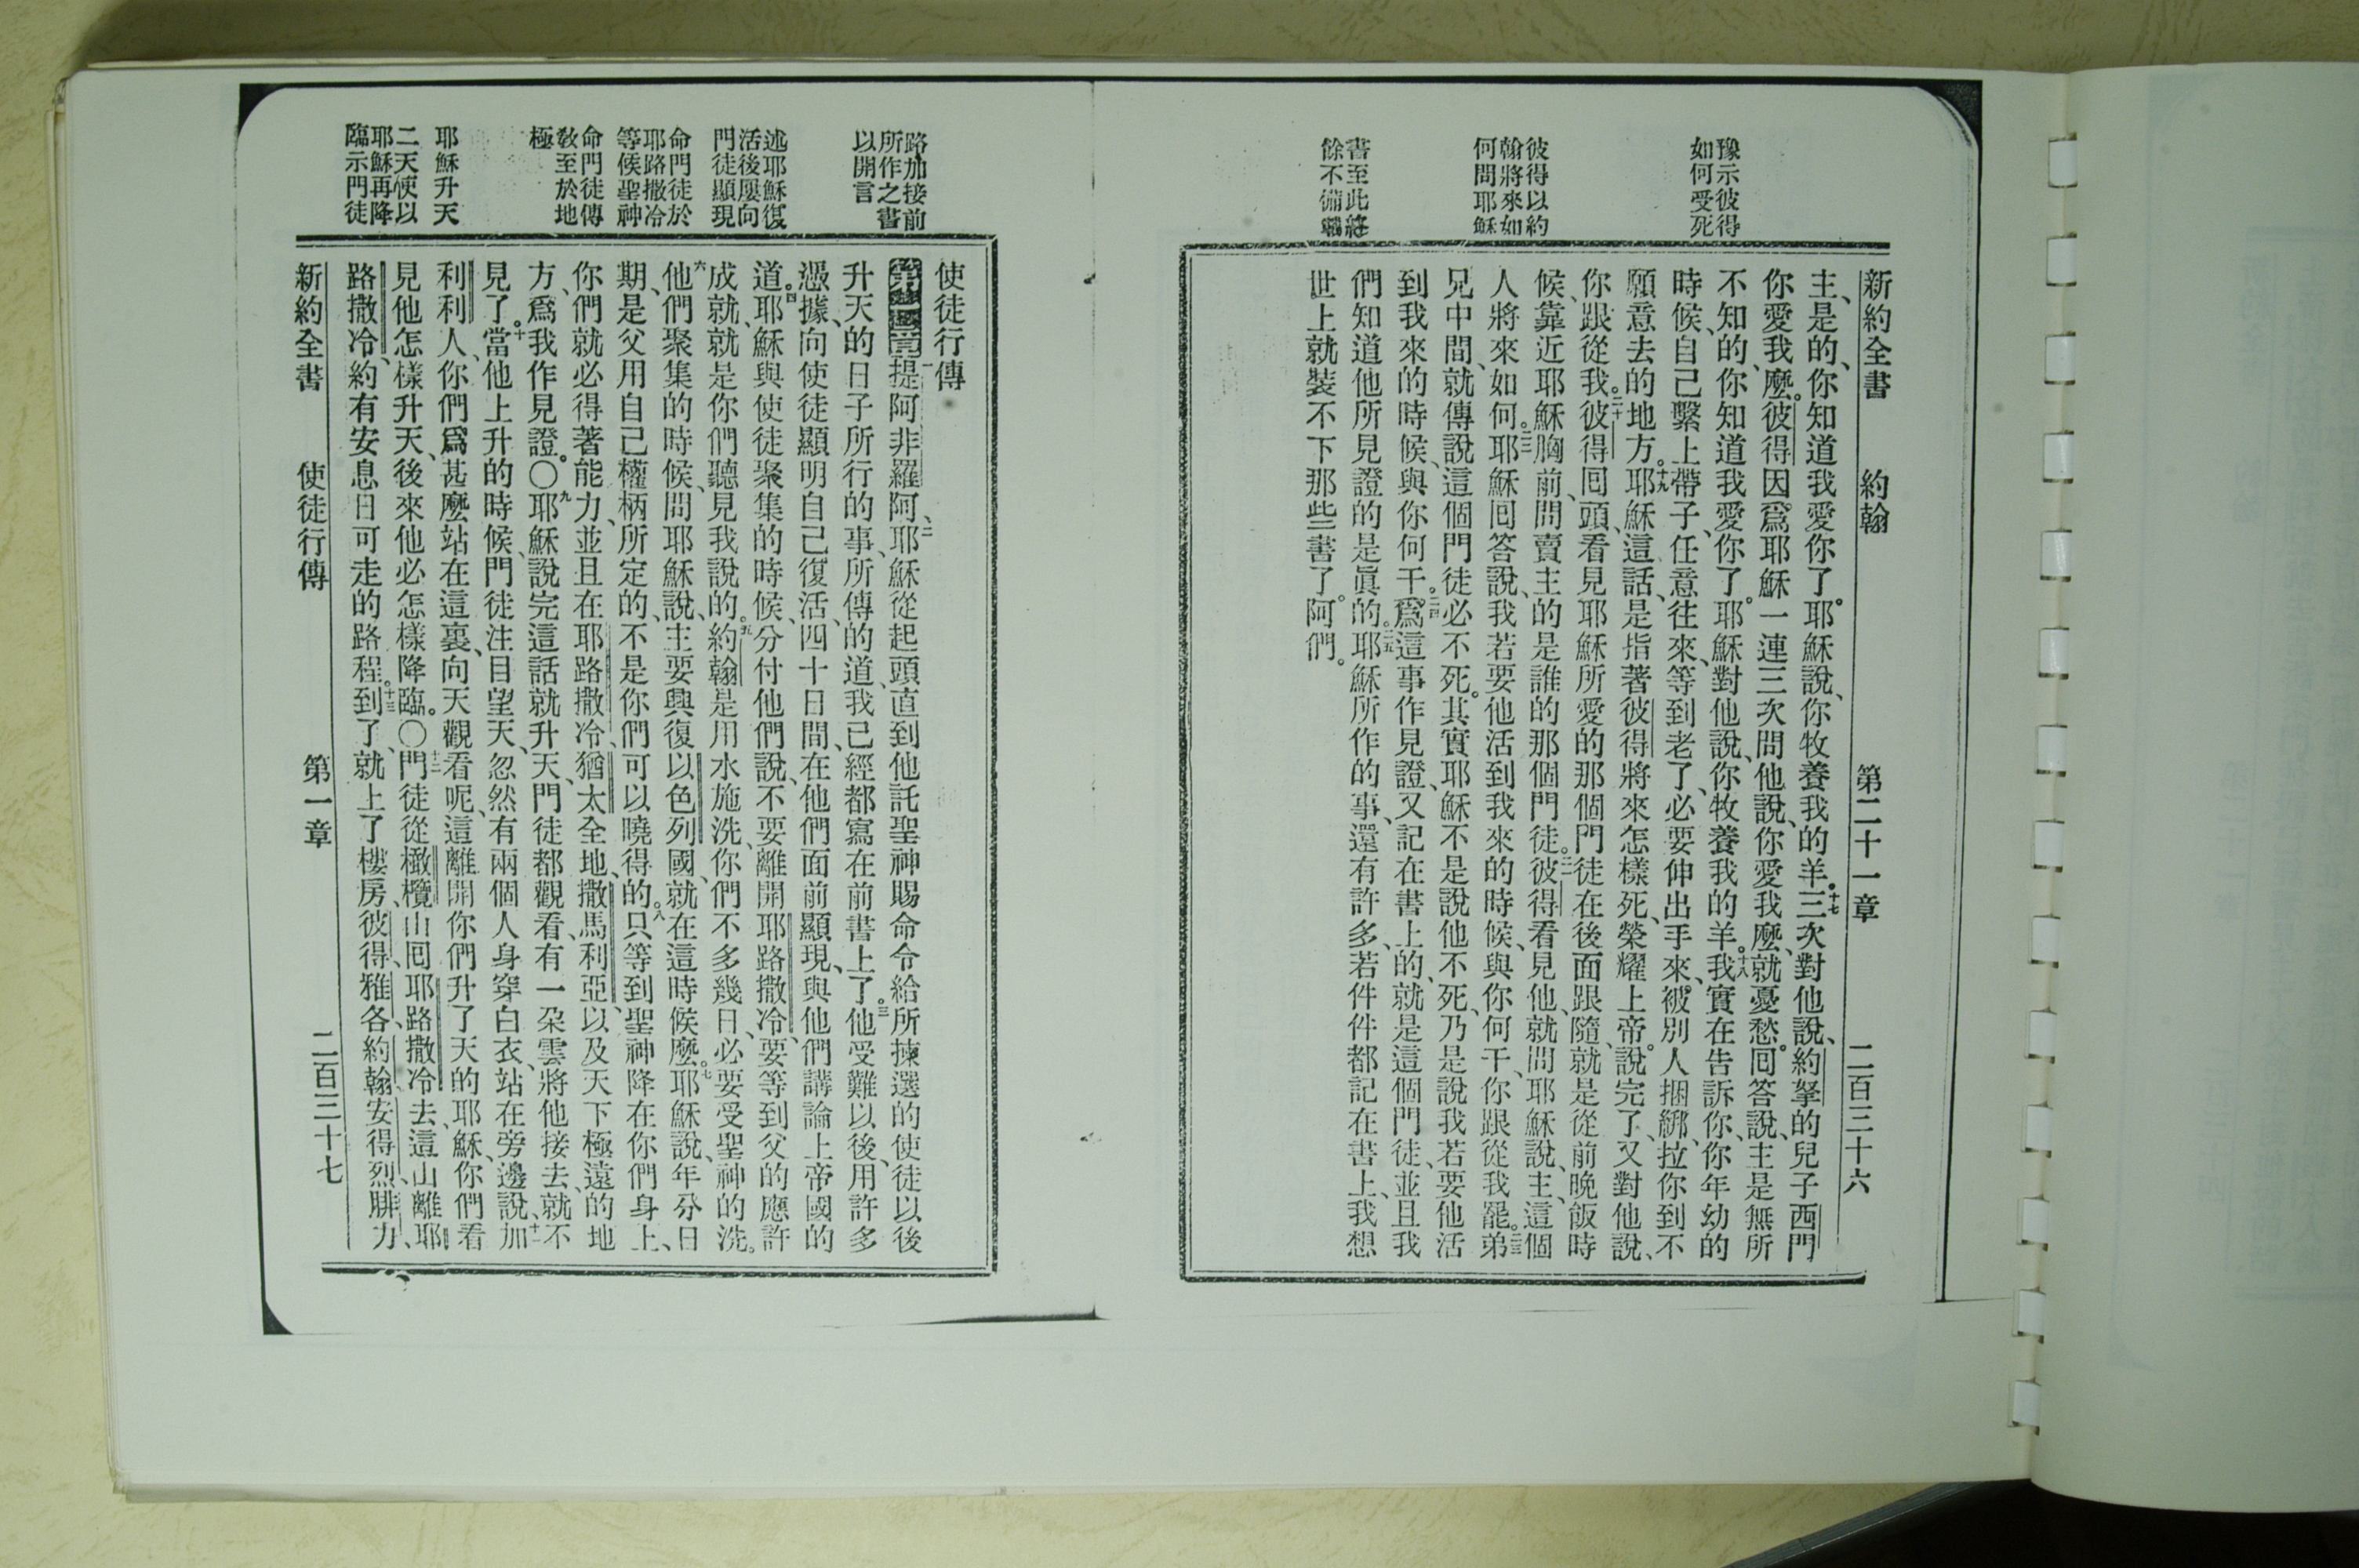 豫示彼得
如何受死
彼得以約
翰將來如
何問耶穌
書至此終
餘不備載
新約全書 約翰 第二十一章 二百三十六
主、是的、你知道我愛你了。耶穌說、你牧養我的羊。十七三次對他說、約拏的兒子西門
你愛我麼。彼得因爲耶穌一連三次問他說、你愛我麼、就憂愁。囘答說、主是無所
不知的、你知道我愛你了。耶穌對他說、你牧養我的羊。十八我實在告訴你、你年幼的
時候、自己繫上帶子、任意往來、等到老了、必要伸出手來、被別人捆綁、拉你到不
願意去的地方。十九耶穌這話、是指著彼得將來怎樣死、榮耀上帝。說完了、又對他說、
你跟從我。二十彼得囘頭、看見耶穌所愛的那個門徒在後面跟隨、就是從前晚飯時
候、靠近耶穌胸前、問賣主的是誰的那個門徒。二一彼得看見他、就問耶穌說、主、這個
人將來如何。二二耶穌囘答說、我若要他活到我來的時候、與你何干、你跟從我罷。二三弟
兄中間、就傳說這個門徒必不死。其實耶穌不是說他不死、乃是說我若要他活
到我來的時候、與你何干。二四爲這事作見證、又記在書上的、就是這個門徒、並且我
們知道他所見證的是眞的。二五耶穌所作的事、還有許多、若件件都記在書上、我想
世上就裝不下那些書了。阿們。
路加接前
所作之書
以開言
述耶穌復
活後屢向
門徒顯現
命門徒於
耶路撒冷
等候聖神
命門徒傳
教至於地
極
耶穌升天
二天使以
耶穌再降
臨示門徒
使徒行傳
第一章一提阿非羅阿、二耶穌從起頭直到他託聖神賜命令給所揀選的使徒以後
升天的日子所行的事、所傳的道、我已經都寫在前書上了。三他受難以後、用許多
憑據、向使徒顯明自己復活、四十日間、在他們面前顯現、與他們講論上帝國的
道。四耶穌與使徒聚集的時候、分付他們說、不要離開耶路撒冷、要等到父的應許
成就、就是你們聽見我說的。五約翰是用水施洗、你們不多幾日、必要受聖神的洗。
六他們聚集的時候、問耶穌說、主要興復以色列國、就在這時候麼。七耶穌說、年分日
期、是父用自己權柄所定的、不是你們可以曉得的。八只等到聖神降在你們身上、
你們就必得著能力、並且在耶路撒冷、猶太全地、撒馬利亞、以及天下極遠的地
方、爲我作見證。〇九耶穌說完這話就升天、門徒都觀看、有一朶雲將他接去、就不
見了。十當他上升的時候、門徒注目望天、忽然有兩個人身穿白衣、站在旁邊說、十一加
利利人、你們爲甚麼站在這裏、向天觀看呢、這離開你們升了天的耶穌、你們看
見他怎樣升天、後來他必怎樣降臨。〇十二門徒從橄欖山囘耶路撒冷去、這山離耶
路撒冷、約有安息日可走的路程。十三到了、就上了樓房、彼得、雅各、約翰、安得烈、腓力、
新約全書 使徒行傳 第一章 二百三十七